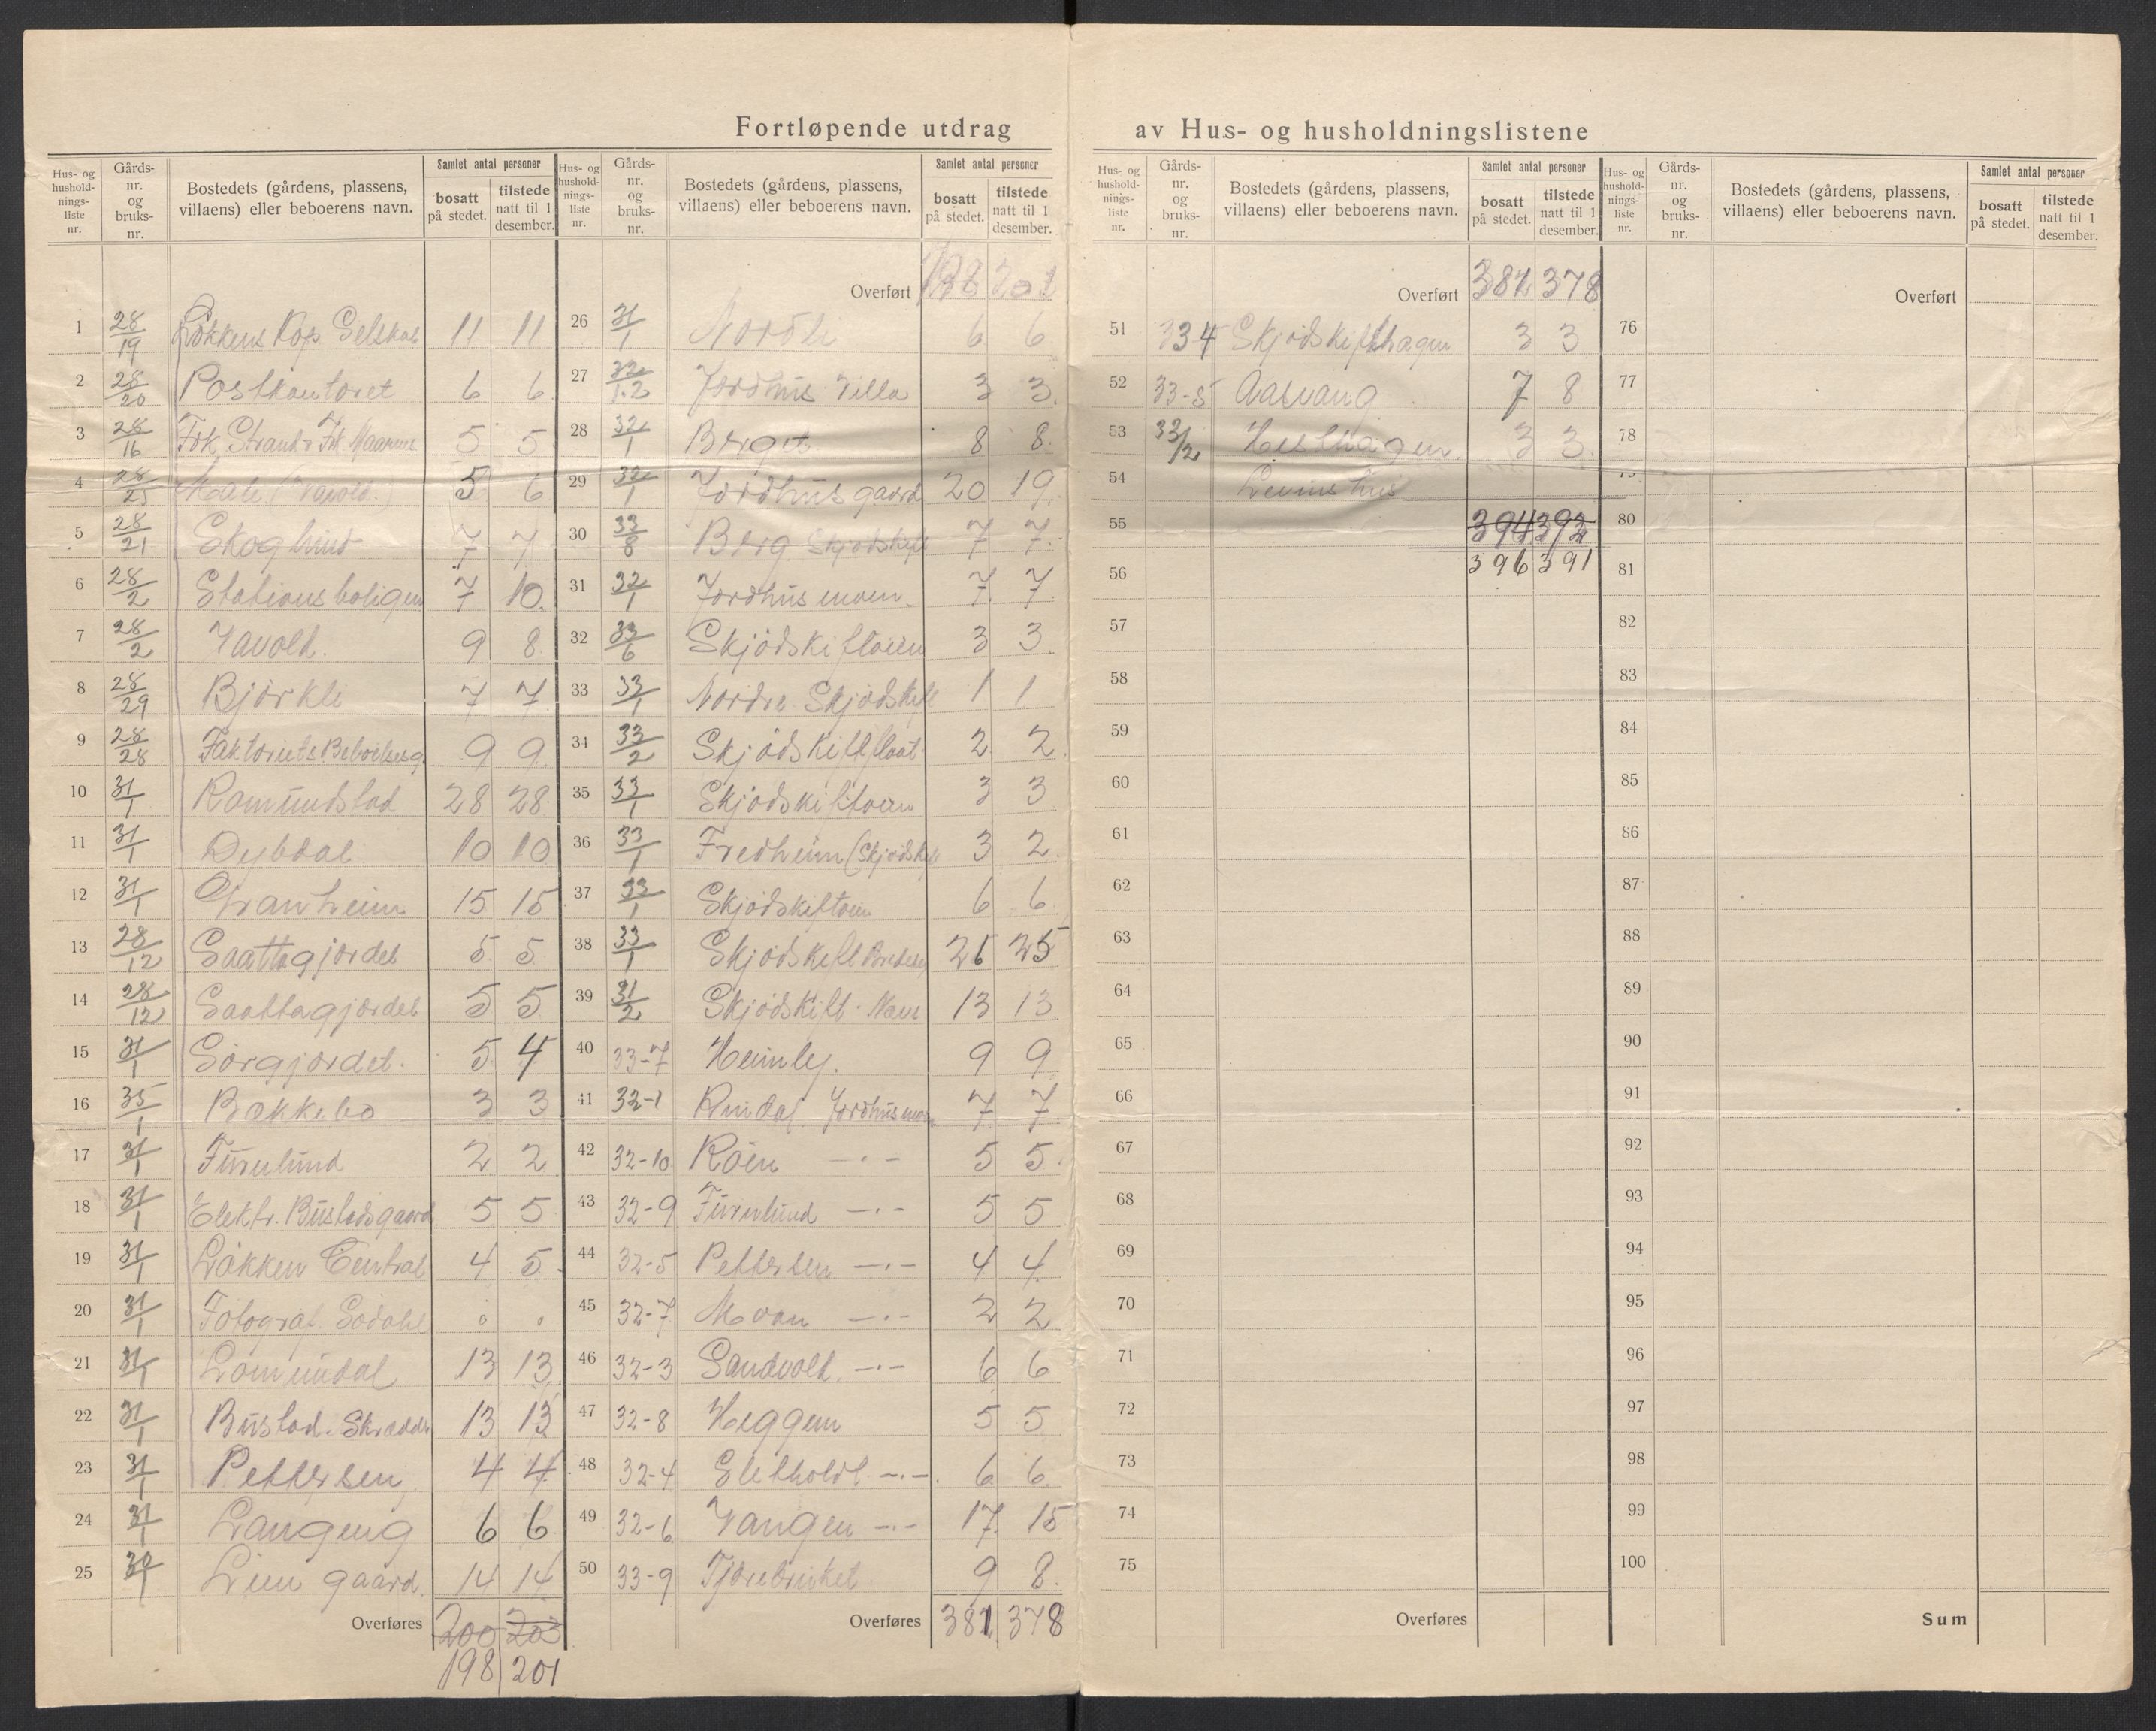 Fortløpende utdrag av Hus- og husholdningslistene
Hus- og hushold-nings-liste nr. Gårds-nr. og bruks-nr. Bostedets (gårdens, plassens, villaens) eller beboerens navn. Samlet antal personer bosatt på stedet. tilstede natt til 1 desember.
1 28/19 Løkkens Kop. Selskab 11 11
2 28/20 Postkontoret 6 6
3 28/16 Frk. Strand 5 5
4 28/25 5 6
5 28/21 Skoglund 7 7
6 28/2 Stationsboligen 7 10
7 28/2 Vavold. 9 8
8 28/29 Björkli 7 7
9 28/28 Faktoriets 9 9
10 31/1 Ramundstad 28 28
11 31/1 Dybdal 10 10
12 31/1 Granheim 15 15
13 28/12 Saattagjordet 5 5
14 28/12 Saattagjordet 5 5
15 31/1 Sörgjordet. 5 4
16 35/1 Bækkebo 3 3
17 31/1 Furulund 2 2
18 31/1 Elektr. Bustadsgaard 5 5
19 31/1 Løkken Central 4 5
20 31/1 Fotograf. Sodahl 0 0
21 31/1 Lomundal 13 13
22 31/1 Bustad. Skrædder 13 13
23 31/1 Pettersen 4 4
24 31/1 Langeng 6 6
25 Lien gaard. 14 14
Overføres 200 203
198 201
Hus- og hushold-nings-liste nr. Gårds-nr. og bruks-nr. Bostedets (gårdens, plassens, villaens) eller beboerens navn. Samlet antal personer bosatt på stedet. tilstede natt til 1 desember.
Overført 198 201
26 31/1 Nordli 6 6
27 32/1.2 Jordhus Villa 3 3
28 32/1 Berget 8 8
29 32/1 Jordhus gaard 20 19
30 33/8 Berg Skjødskift 7 7
31 32/1 Jordhusmoen 7 7
32 33/6 Skjödskiftøien 3 3
33 33/1 Nordre Skjödskift 1 1
34 33/2 Skjödskift 2 2
35 33/1 Skjödskiftøien 3 3
36 33/1 Fredheim (Skjödskift 3 2
37 33/1 Skjödskiftøien 6 6
38 33/1 Skjödskift 25
39 31/2 Skjödskift 13 13
40 33-7 Heimly. 9 9
41 32-1 Rindal. Jordhusmoen 7 7
42 32-10 Röen —·— 5 5
43 32-9 Furulund —·— 5 5
44 32-5 Pettersen —·— 4 4
45 32-7 Moan —·— 2 2
46 32-3 Sandvold. —·— 6 6
47 32-8 Heggem 5 5
48 32-4 Sletholdt —·— 6 6
49 32-6 Vangen —·— 17 15
50 33-9 9 8
Overføres 381 378
Hus- og hushold-nings-liste nr. Gårds-nr. og bruks-nr. Bostedets (gårdens, plassens, villaens) eller beboerens navn. Samlet antal personer bosatt på stedet. tilstede natt til 1 desember.
Overført 381 378
51 334 Skjödskifthagen 3 3
52 33-5 Aasvang 7 8
53 33/2 3 3
54
55 394 392
56 396 391
57
58
59
60
61
62
63
64
65
66
67
68
69
70
71
72
73
74
75
Overføres
Hus- og hushold-nings-liste nr. Gårds-nr. og bruks-nr. Bostedets (gårdens, plassens, villaens) eller beboerens navn. Samlet antal personer bosatt på stedet. tilstede natt til 1 desember.
Overført
76
77
78
80
81
82
83
84
85
86
87
88
89
90
91
92
93
94
95
96
97
98
99
100
Sum